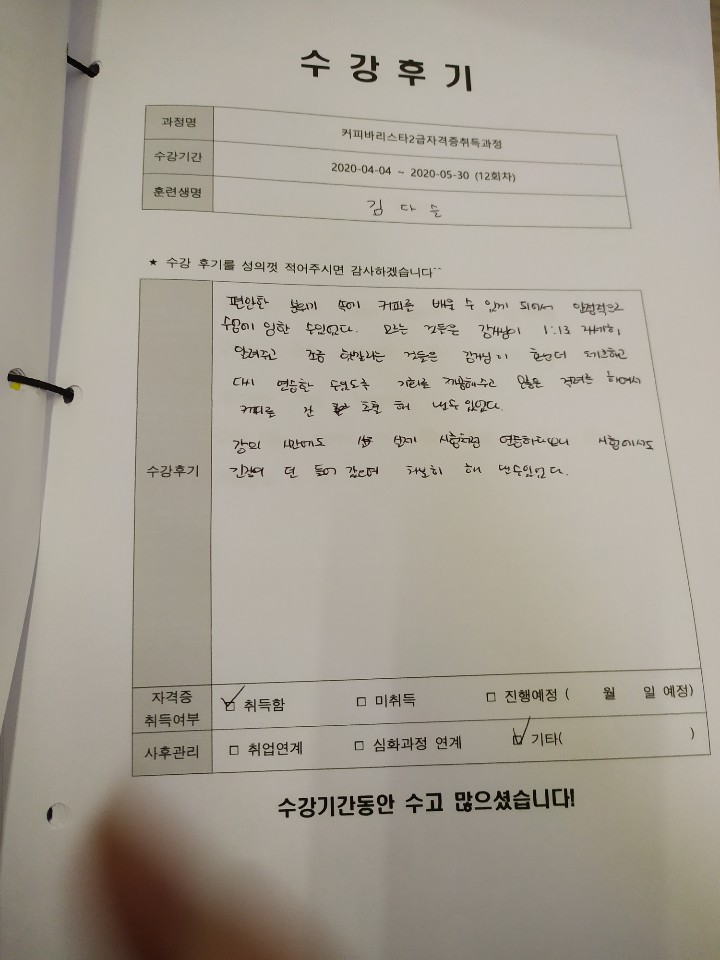 수 강 후 기
과정명 커피바리스타2급자격증취득과정
수강기간 2020-04-04 ~ 2020-05-30 (12회차)
훈련생명 김 다 슬
★ 수강 후기를 성의껏 적어주시면 감사하겠습니다^^
수강후기
편안한 분위기 속에 커피를 배울 수 있게 되어서 안정적으로
수업에 임할 수있었다. 모르는 것들은 강사님이 1:1로 자세히
알려주고 조금 헷갈리는 것들은 강사님이 한번더 체크하고
다시 연습할 수있도록 기회를 제공해주고 많은 격려를 하여서
커피를 잘 추출 해 낼수있었다.
강의 시간에도 실제 시험처럼 연습하다보니 시험에서도
긴장이 덜 들어 갔으며 차분히 해 낼수있었다.
자격증 취득여부 ☑ 취득함 □ 미취득 □ 진행예정 ( 월 일 예정)
사후관리 □ 취업연계 □ 심화과정 연계 ☑ 기타( )
수강기간동안 수고 많으셨습니다!